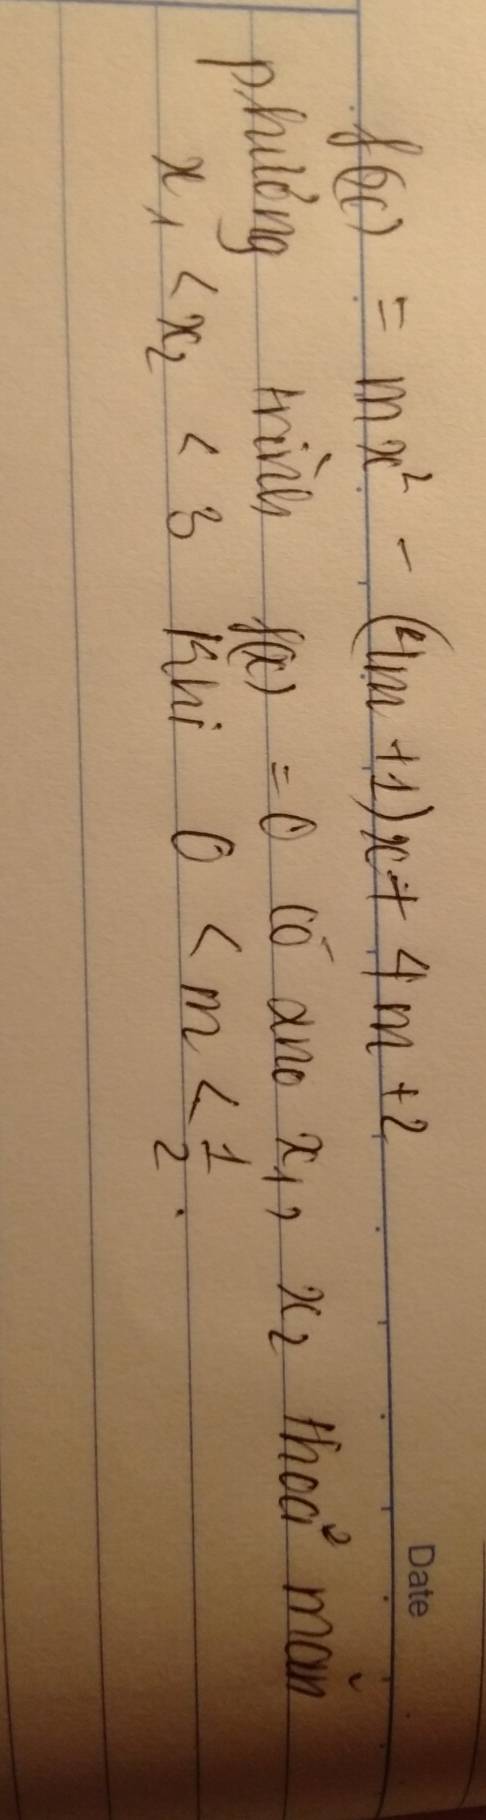 Date
f(x) = mx² - (4m + 1)x + 4m + 2
phương trình f(x) = 0 có x₁, x₂ thoả mãn
x₁ < x₂ < 3 khi 0 < m < 1/2.